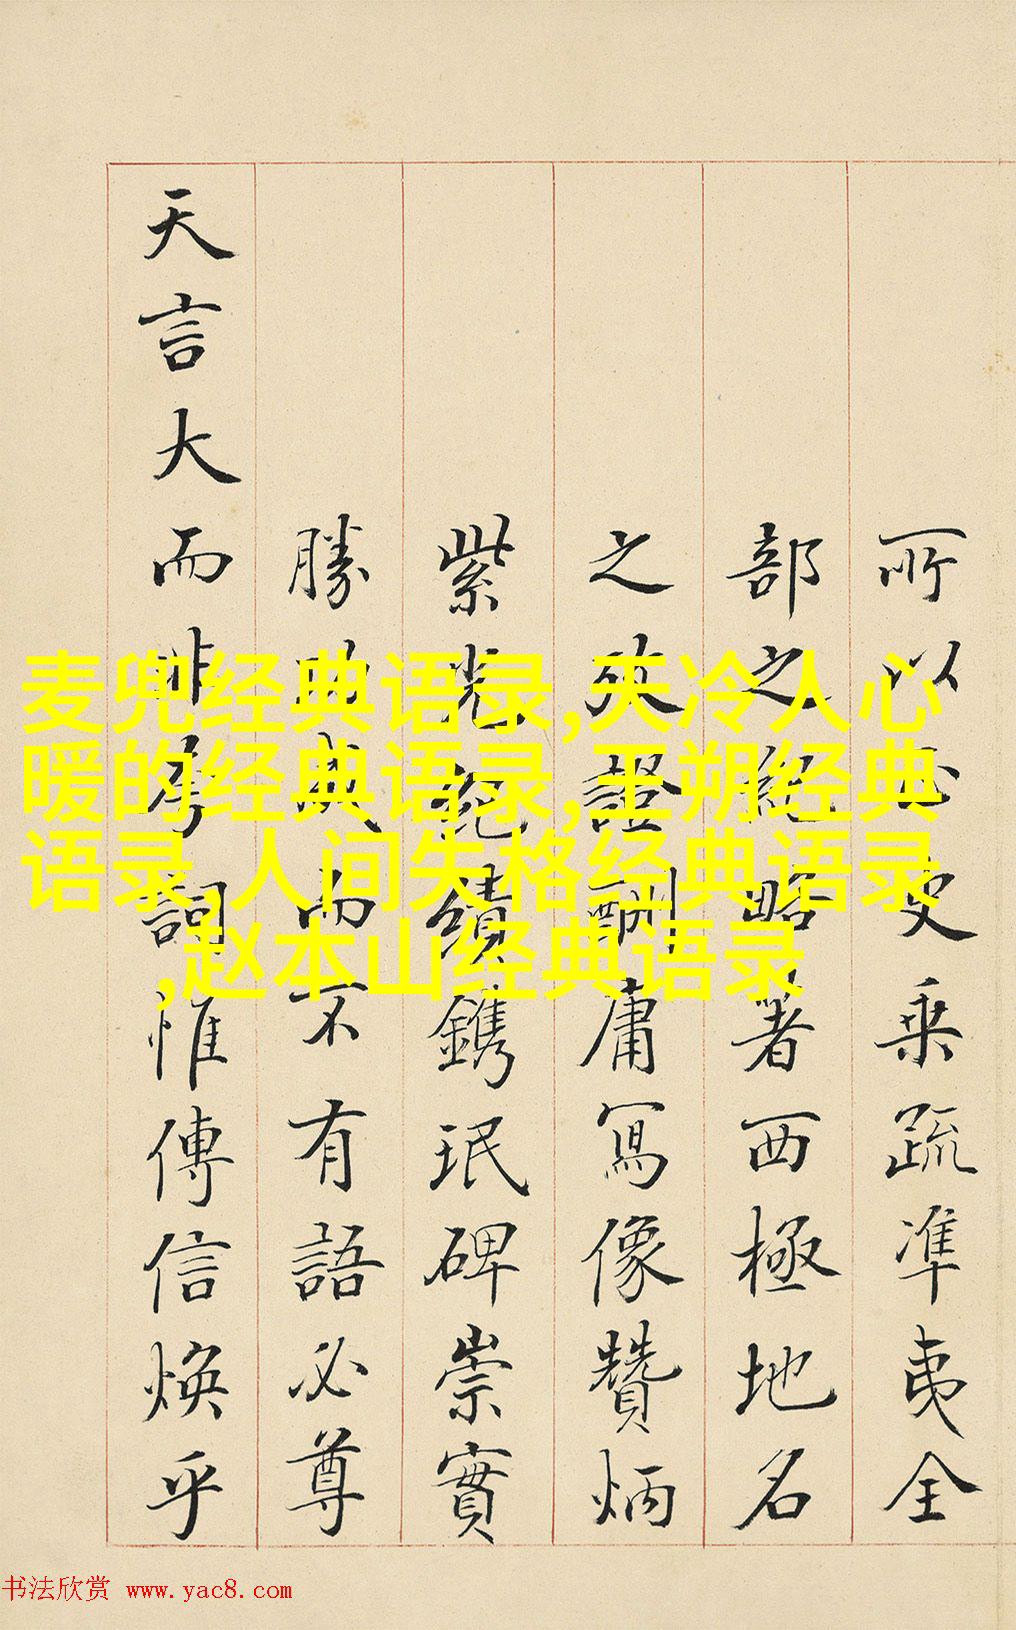 所以史乗疏凖夷全
部之略著西極地名
之爽證酬庸寫像贊炳
紫光紀績鐫珉碑崇實
勝典而不有語必尊
天言大而非詞惟傳信煥乎
麦兜经典语录,天冷人心
暖的经典语录,王朔经典
语录,人间失格经典语录
,赵本山经典语录
书法欣赏 www.yac8.com